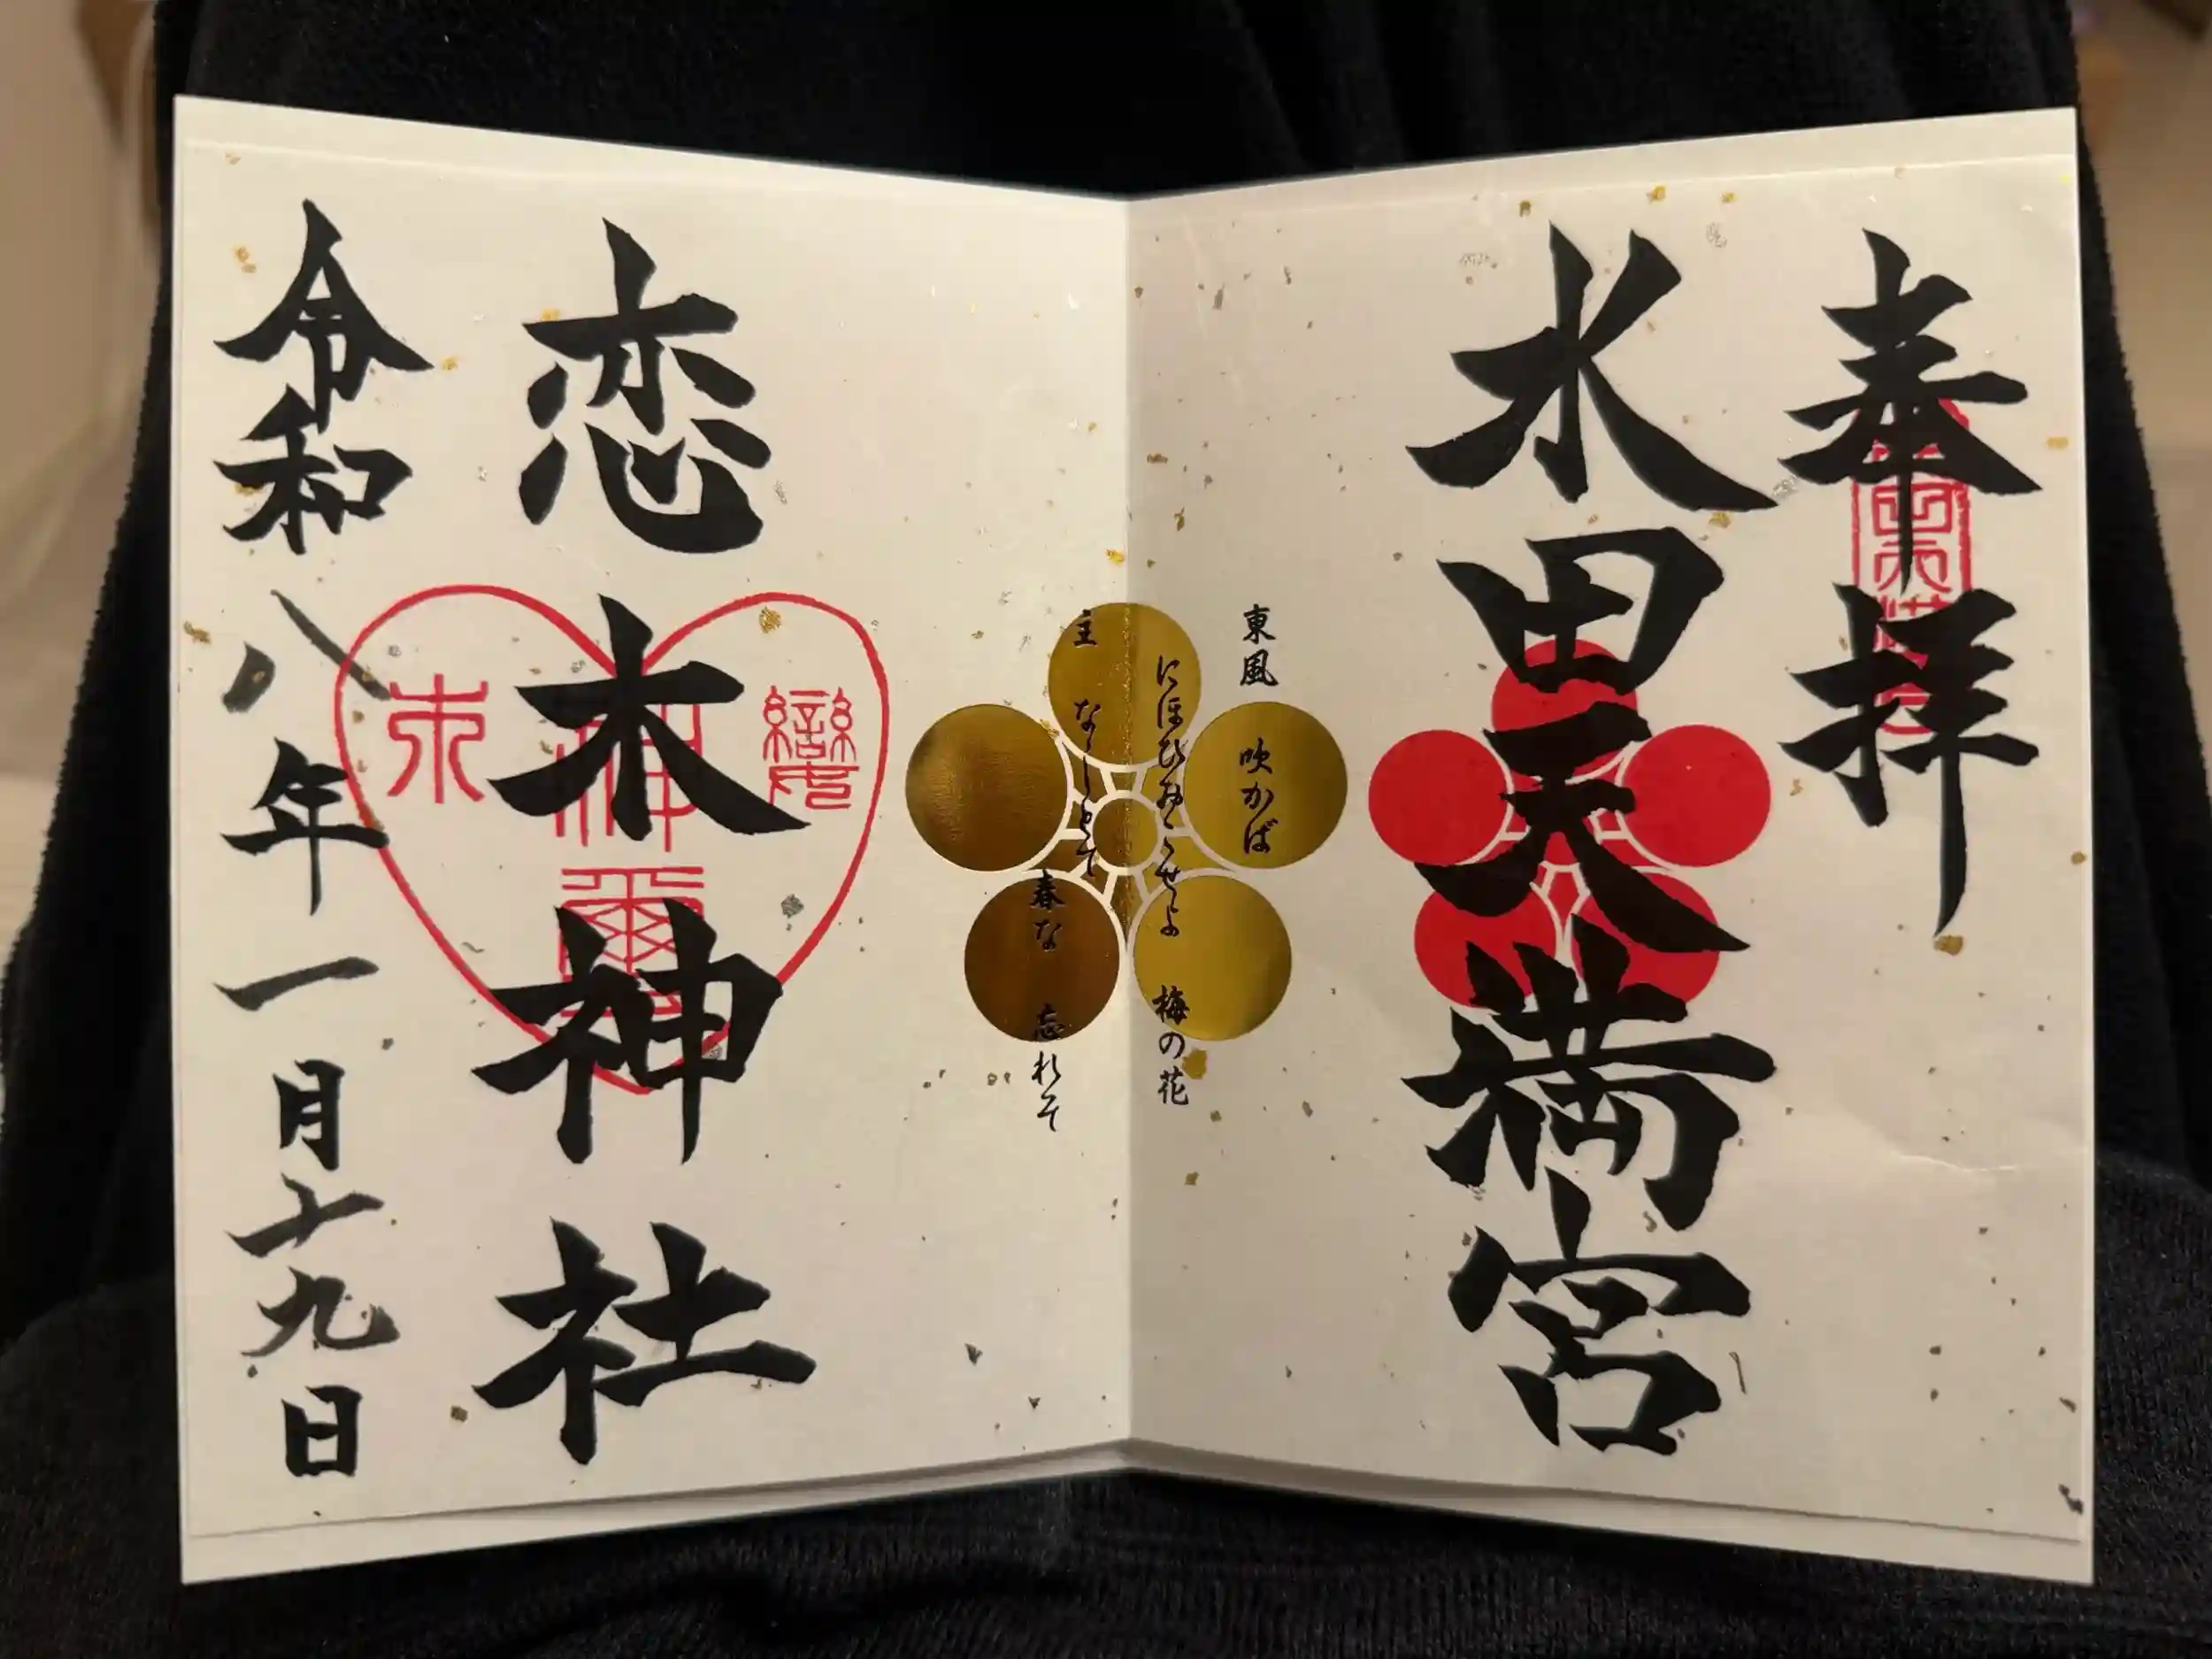 奉拝
水田天満宮
東風 吹かば
にほひおこせよ 梅の花
主 なしとて
春な 忘れそ
恋木神社
戀
神璽
木
令和八年一月十九日